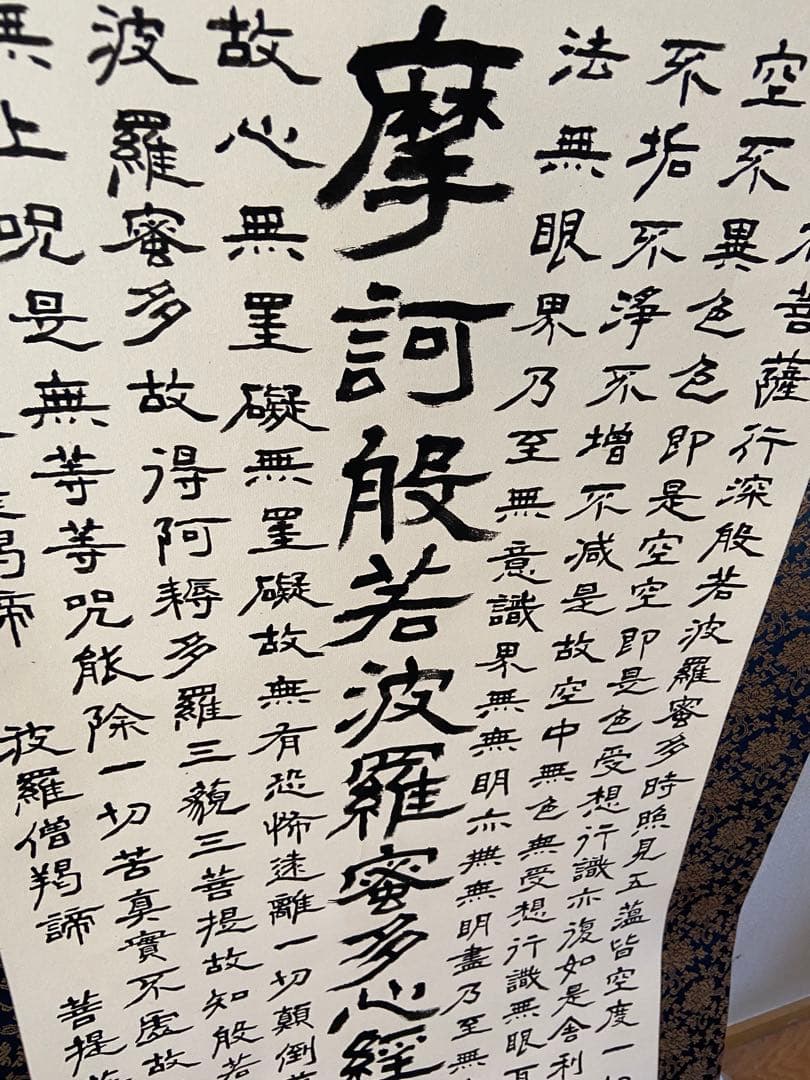 菩薩行深般若波羅蜜多時照見五蘊皆空度一
空不異色色即是空空即是色受想行識亦復如是舍利
不垢不淨不增不減是故空中無色無受想行識無眼
法無眼界乃至無意識界無無明亦無無明盡乃至無
摩訶般若波羅蜜多心經
故心無罣礙無罣礙故無有恐怖遠離一切顛倒
波羅蜜多故得阿耨多羅三藐三菩提故知般若
無上呪是無等等呪能除一切苦真實不虛故
羯諦 波羅僧羯諦 菩提